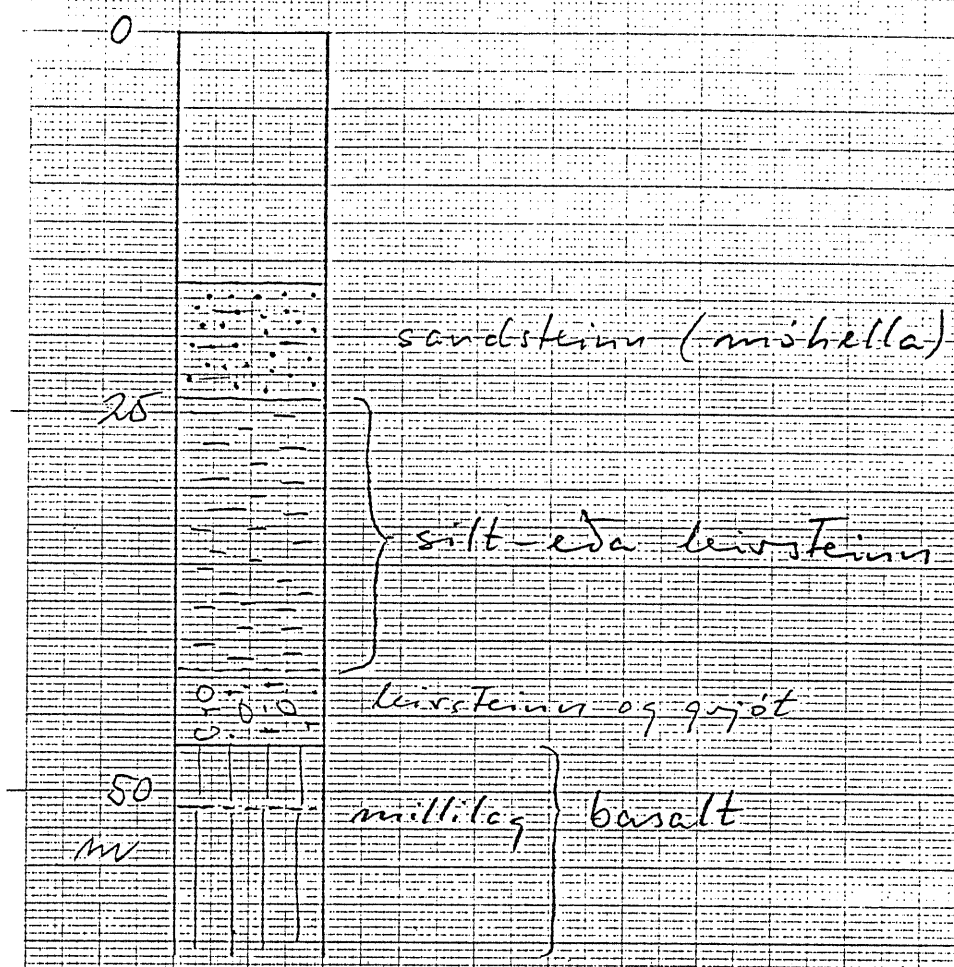 0
sandsteinn (móhella)
25
silt-eða leirsteinn
leirsteinn og grjót
50
millilag
basalt
m